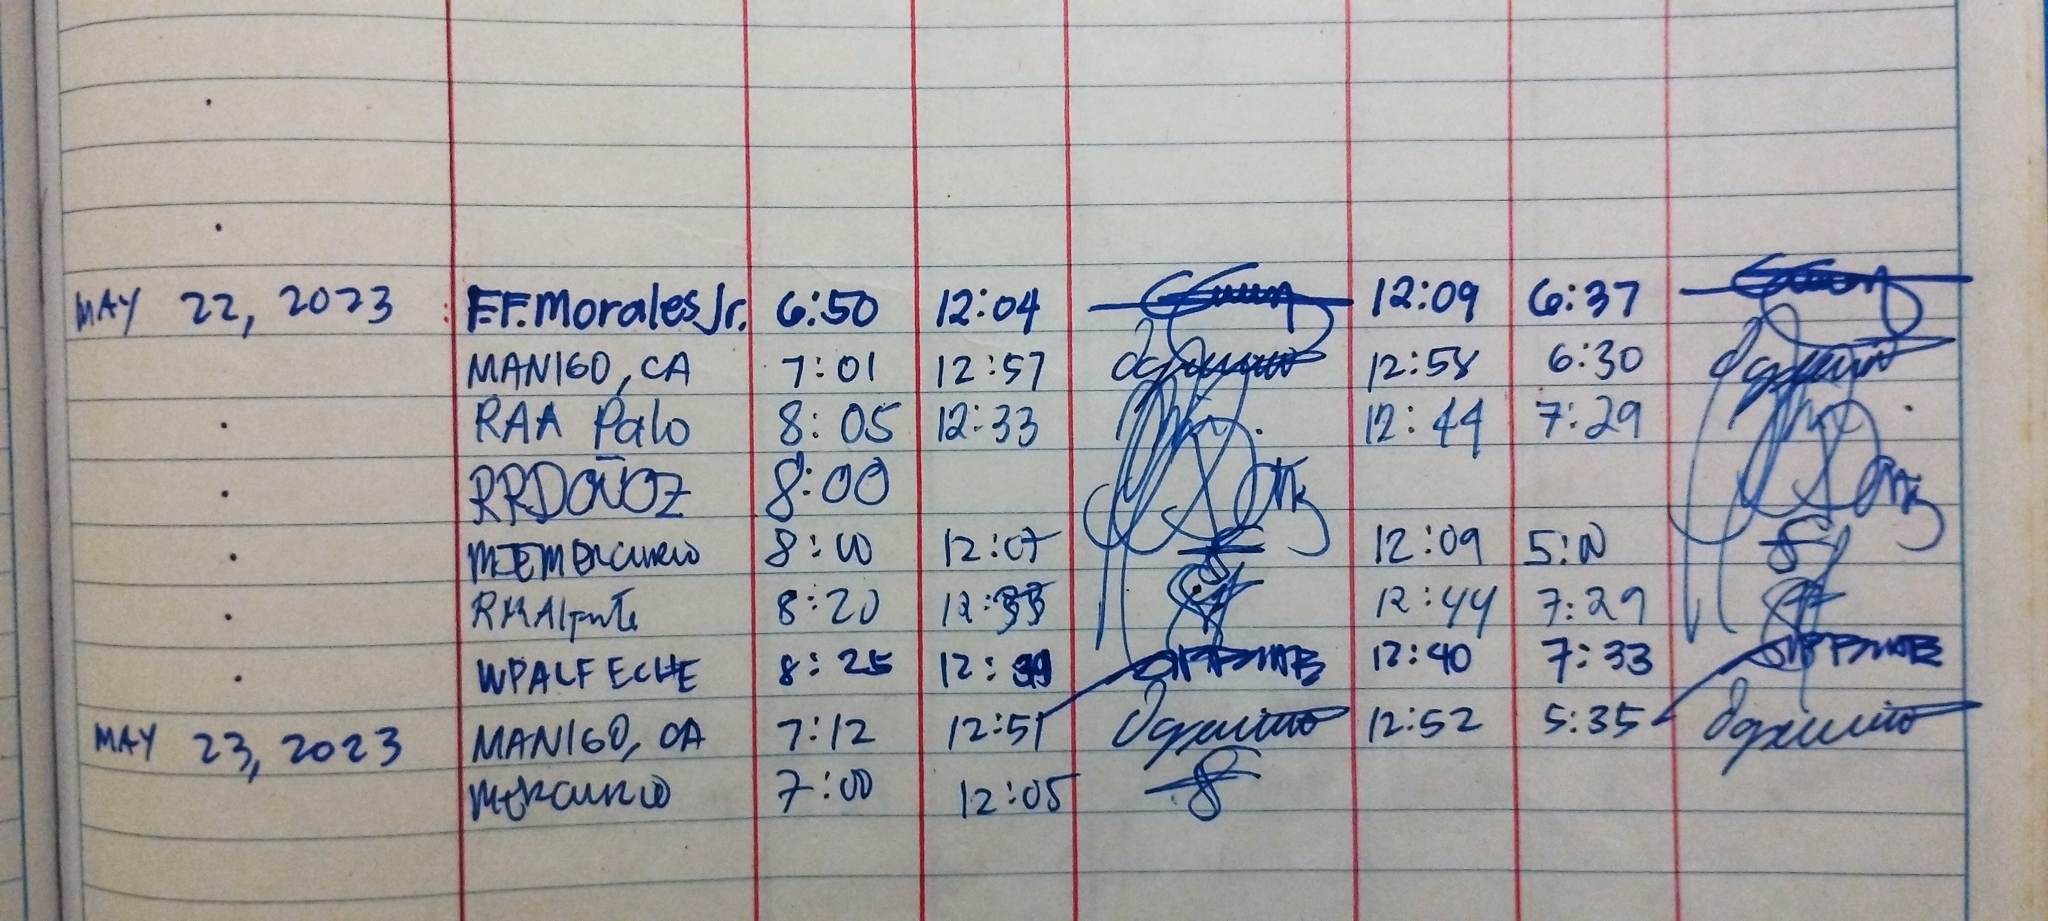 MAY 22, 2023 : E.F. Morales Jr. 6:50 12:04 12:09 6:37
MANIGO, CA 7:01 12:57 12:58 6:30
RAA Palo 8:05 12:33 12:44 7:29
RRDOÑOZ 8:00
MEMERCURIO 8:00 12:07 12:09 5:00
8:20 12:33 12:44 7:29
WPALFECHE 8:25 12:39 12:40 7:33
MAY 23, 2023 MANIGO, CA 7:12 12:51 12:52 5:35
MERCURIO 7:00 12:05